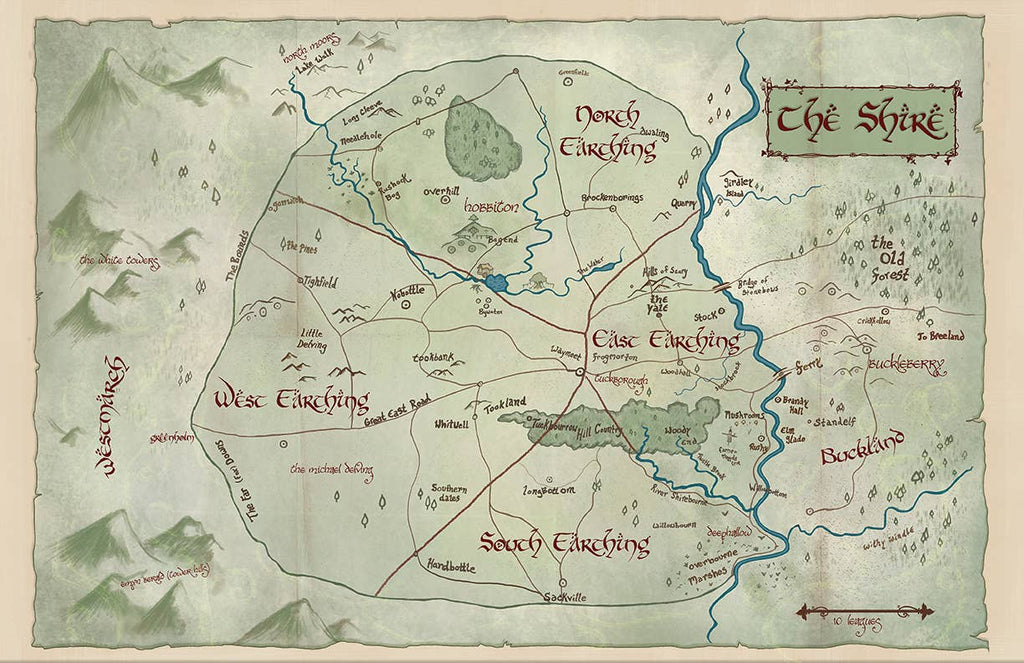 North Moors
Lake Walk
Greenfields
The Shire
Long Cleeve
North
Earthing
Dwaling
Needlehole
Rushock
Bog
Overhill
Hobbiton
Brockenborings
Quarry
Girdley
Island
Gamwich
Bagend
the
Old
Forest
The Bounds
The Pines
The Water
Hills of Scary
the white towers
Tighfield
Nobottle
Bywater
the
Yale
Bridge of
Stonebows
Stock
Crickhollow
To Breeland
Little
Delving
East Earthing
Tookbank
Waymeet
Frogmorton
Tuckborough
Woodhall
Stockbrook
Ferry
Buckleberry
Westmarch
West Earthing
Great East Road
Tookland
Whitwell
Tuckbourrow
Hill Country
Woody
End
Mushrooms
Brandy
Hall
Standelf
Elm
Glade
Rushy
Greenholm
Buckland
The Far (fox) Downs
The Michael Delving
Southern
dates
Longbottom
River Shirebourne
Willowbottom
Willowbourn
Deephallow
Withy Windle
South Earthing
Overbourne
Marshes
Emyn Beraid (Tower hills)
Hardbottle
Sackville
10 Leagues